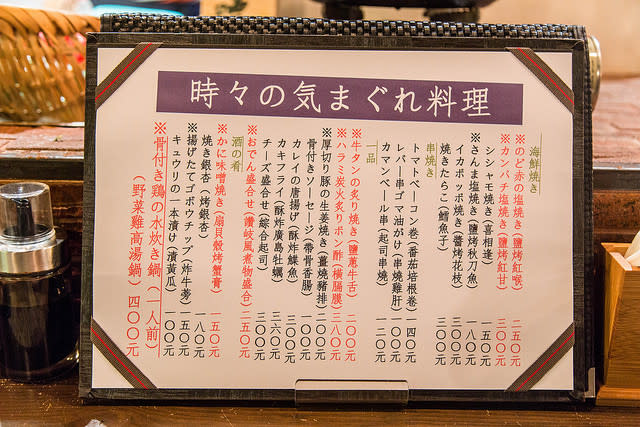 時々の気まぐれ料理
海鮮焼き
※のど赤の塩焼き(鹽烤紅喉) 二五〇元
※カンパチ塩焼き(鹽烤紅甘) 三〇〇元
シシャモ焼き(喜相逢) 一五〇元
※さんま塩焼き(鹽烤秋刀魚) 一八〇元
イカポッポ焼き(醬烤花枝) 三〇〇元
焼きたらこ(鱈魚子) 三〇〇元
串焼き
トマトベーコン巻(番茄培根卷) 一四〇元
レバー串ゴマ油がけ(串燒雞肝) 一〇〇元
カマンベール串(起司串燒) 一二〇元
一品
※牛タンの炙り焼き(鹽蔥牛舌) 二〇〇元
※ハラミ炭火炙りポン酢(橫膈膜) 三八〇元
※厚切り豚の生姜焼き(薑燒豬排) 二〇〇元
骨付きソーセージ(帶骨香腸) 一〇〇元
カレイの唐揚げ(酥炸鰈魚) 三〇〇元
カキフライ(酥炸廣島牡蠣) 三六〇元
チーズ盛合せ(綜合起司) 三〇〇元
※おでん盛合せ(讚岐風煮物盛合) 二五〇元
酒の肴
※かに味噌焼き(扇貝殼烤蟹膏) 一五〇元
焼き銀杏(烤銀杏) 一八〇元
※揚げたてゴボウチップ(炸牛蒡) 一五〇元
キュウリの一本漬け(漬黃瓜) 一〇〇元
※骨付き鶏の水炊き鍋(一人前)
(野菜雞高湯鍋) 四〇〇元